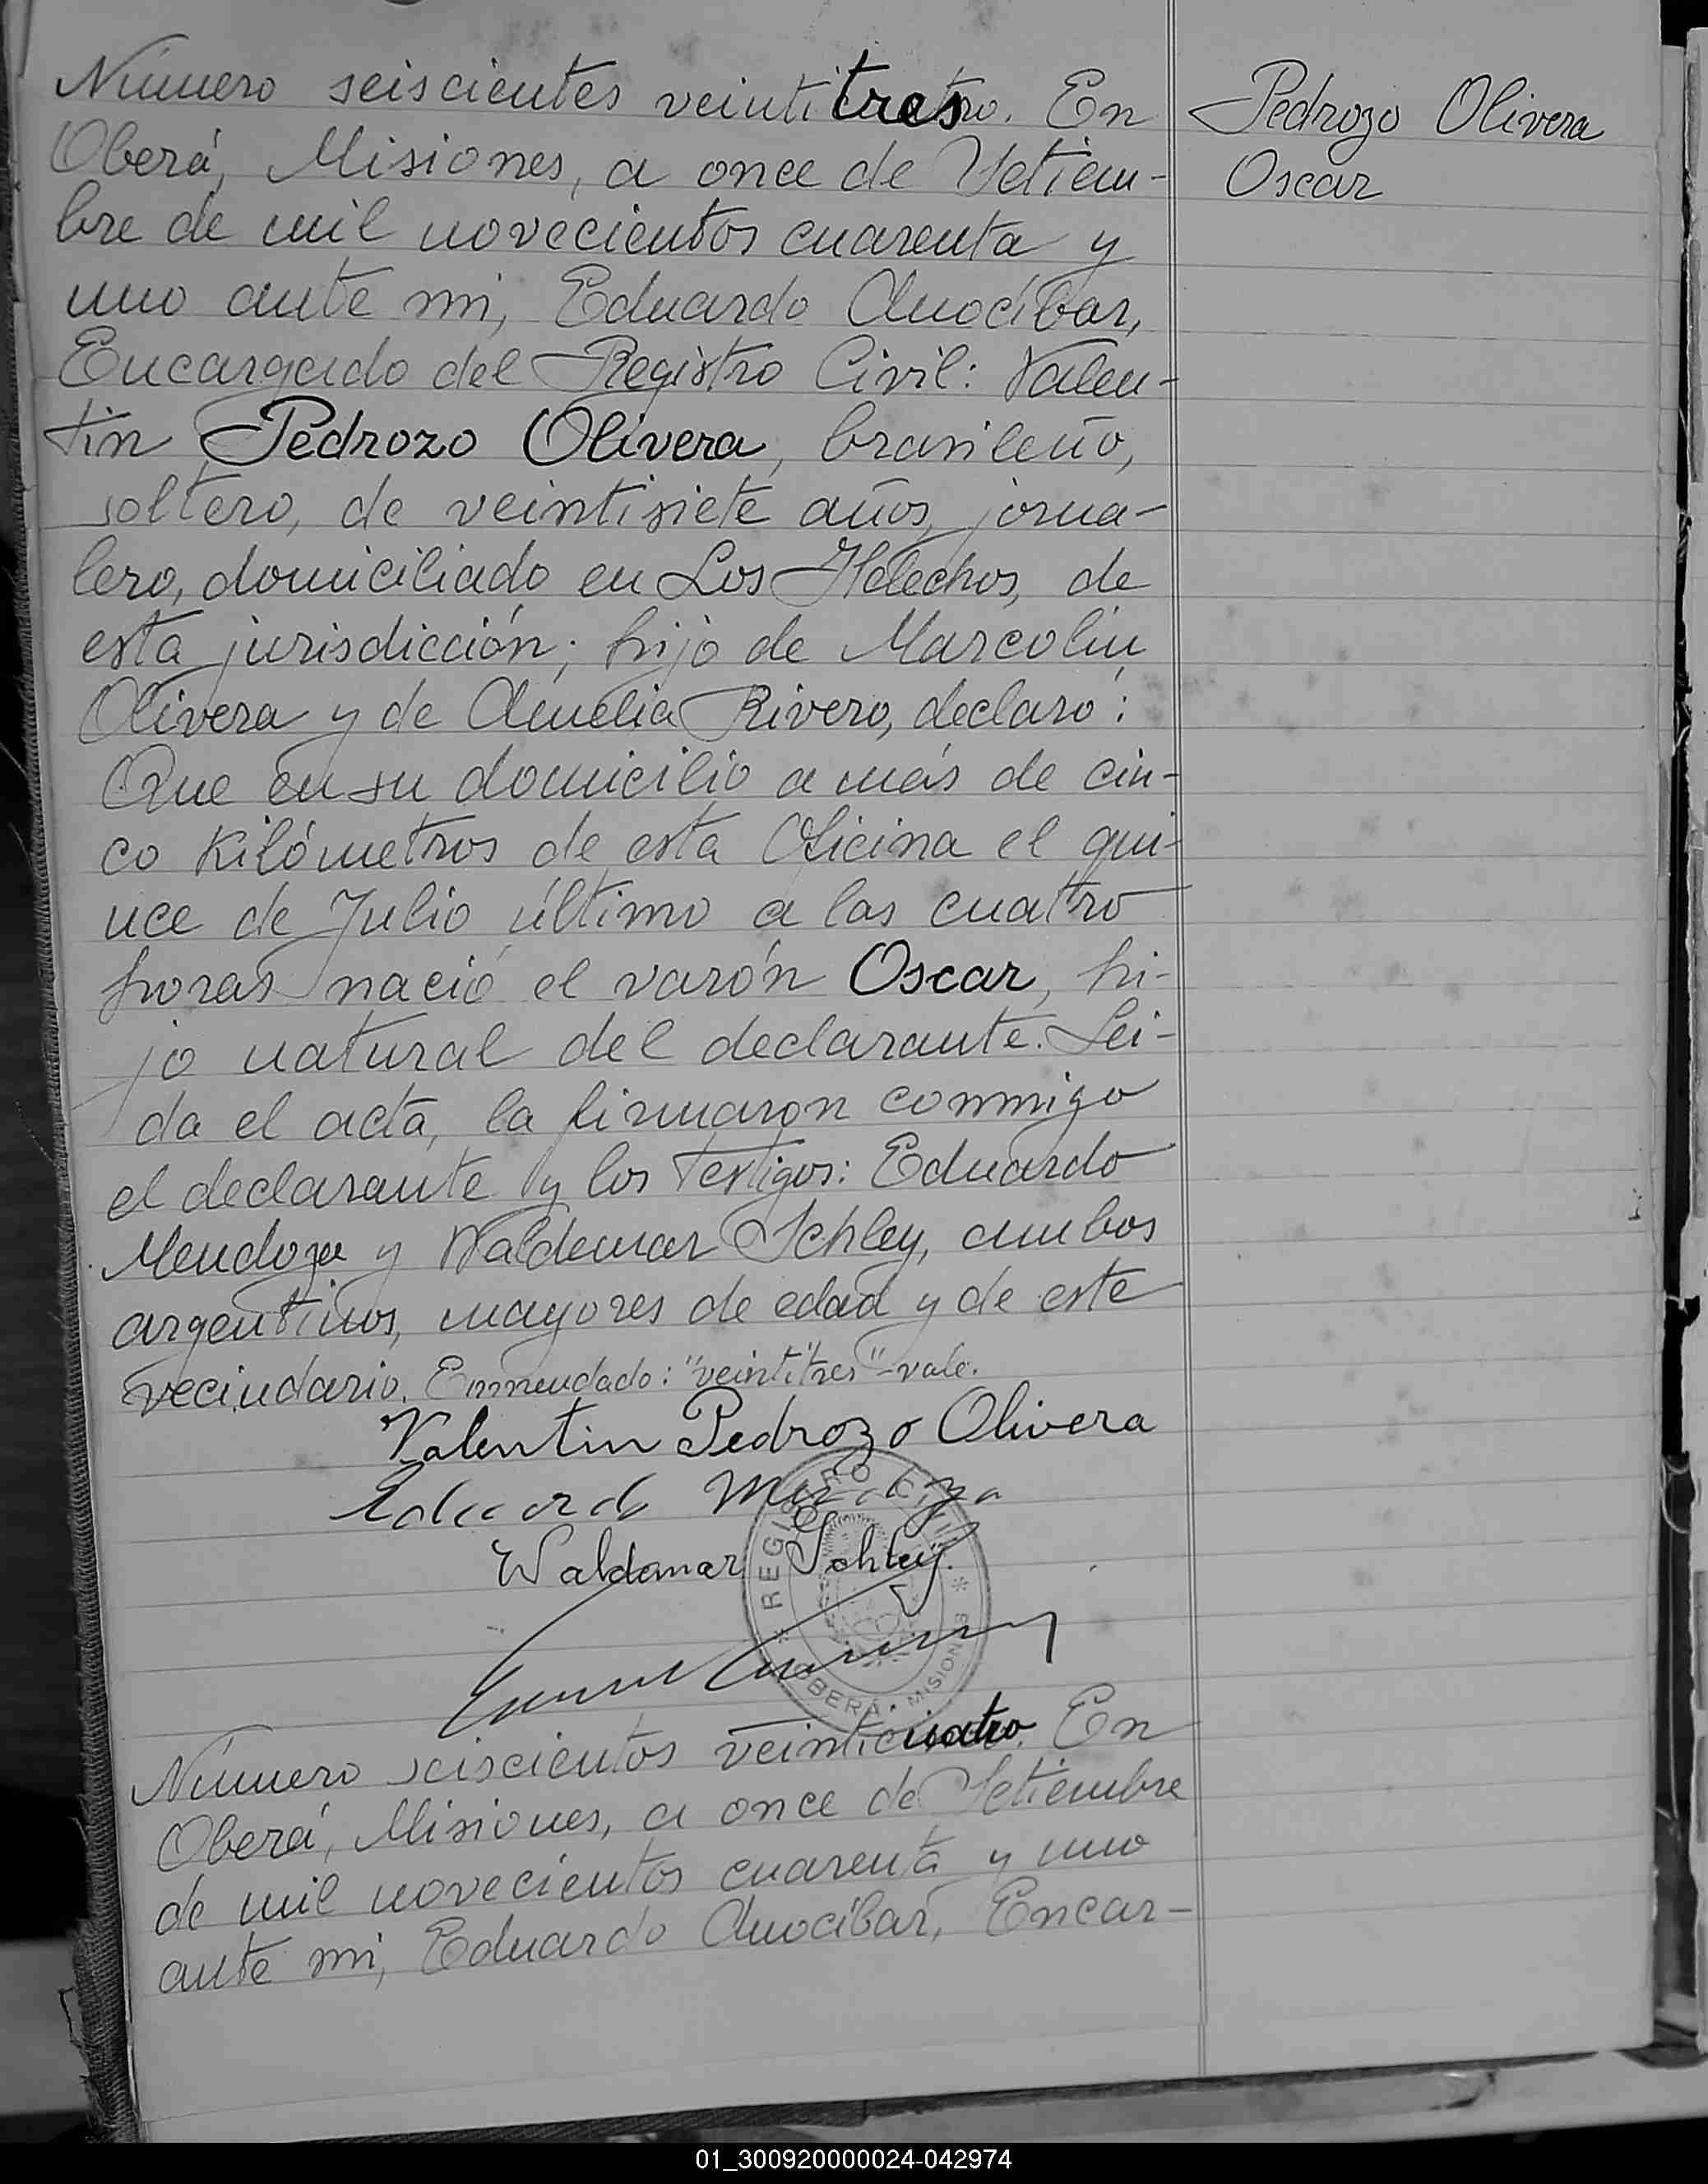 Número seiscientes veintitres. En
Oberá, Misiones, a once de Setiem-
bre de mil novecientos cuarenta y
uno ante mi, Eduardo Anocíbar,
Encargado del Registro Civil: Valen-
tin Pedrozo Olivera, brasileño,
soltero, de veintisiete años, jorna-
lero, domiciliado en Los Helechos, de
esta jurisdicción; hijo de Marcolin
Olivera y de Amélia Rivero, declaró:
Que en su domicilio a más de cin-
co Kilómetros de esta Oficina el quin-
uce de Julio último a las cuatro
horas nació el varón Oscar, hi-
jo natural del declarante. Lei-
da el acta, la firmaron conmigo
el declarante y los testigos: Eduardo
Mendoza y Waldemar Schley, ambos
argentinos, mayores de edad y de este
vecindario. Enmendado: "veintitres" - vale.
Valentin Pedrozo Olivera
Eduardo Mendoza
Waldemar Schley.
REGISTRO CIVIL
* OBERÁ • MISIONES *
Número seiscientos veinticuatro. En
Oberá, Misiones, a once de Setiembre
de mil novecientos cuarenta y uno
ante mi, Eduardo Anocíbar, Encar-
Pedrozo Olivera
Oscar
01_300920000024-042974